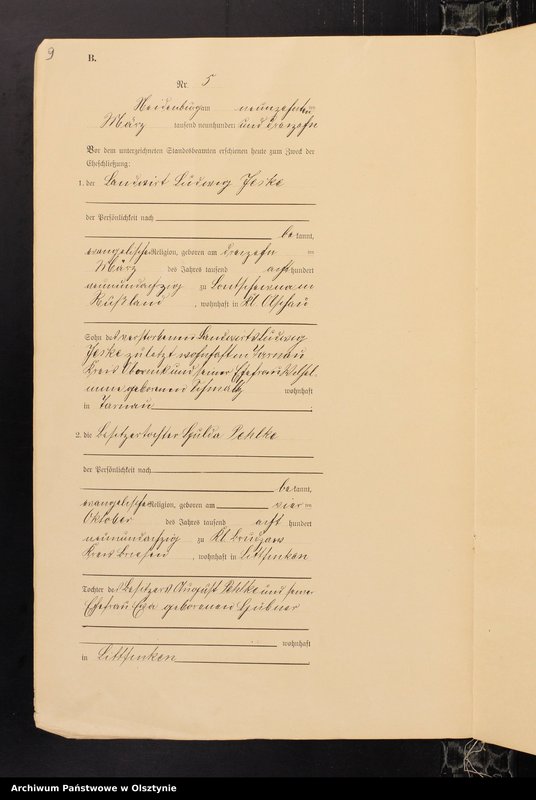 9
B.
Nr. 5
Neidenburg am neunzehnten
März tausend neunhundert und dreizehn
Vor dem unterzeichneten Standesbeamten erschienen heute zum Zweck der
Eheschließung:
1. der Landwirt Ludwig Jeske
der Persönlichkeit nach
bekannt,
evangelischer Religion, geboren am dreizehnten
März des Jahres tausend acht hundert
neunundachzig zu
Rußland, wohnhaft in Kl.
Sohn des verstorbenen Landwirts Ludwig
Jeske zuletzt wohnhaft in Tarnau
Kreis und seiner Ehefrau Wilhel-
mine geborenen Schmaltz wohnhaft
in Tarnau.
2. die Besitzertochter Hulda Pehlke
der Persönlichkeit nach
bekannt,
evangelischer Religion, geboren am vierten
Oktober des Jahres tausend acht hundert
neunundachzig zu Kl.
Kreis Briesen, wohnhaft in Littfinken
Tochter des Besitzers August Pehlke und seiner
Ehefrau Eva geborenen Hübner
wohnhaft
in Littfinken
Archiwum Państwowe w Olsztynie